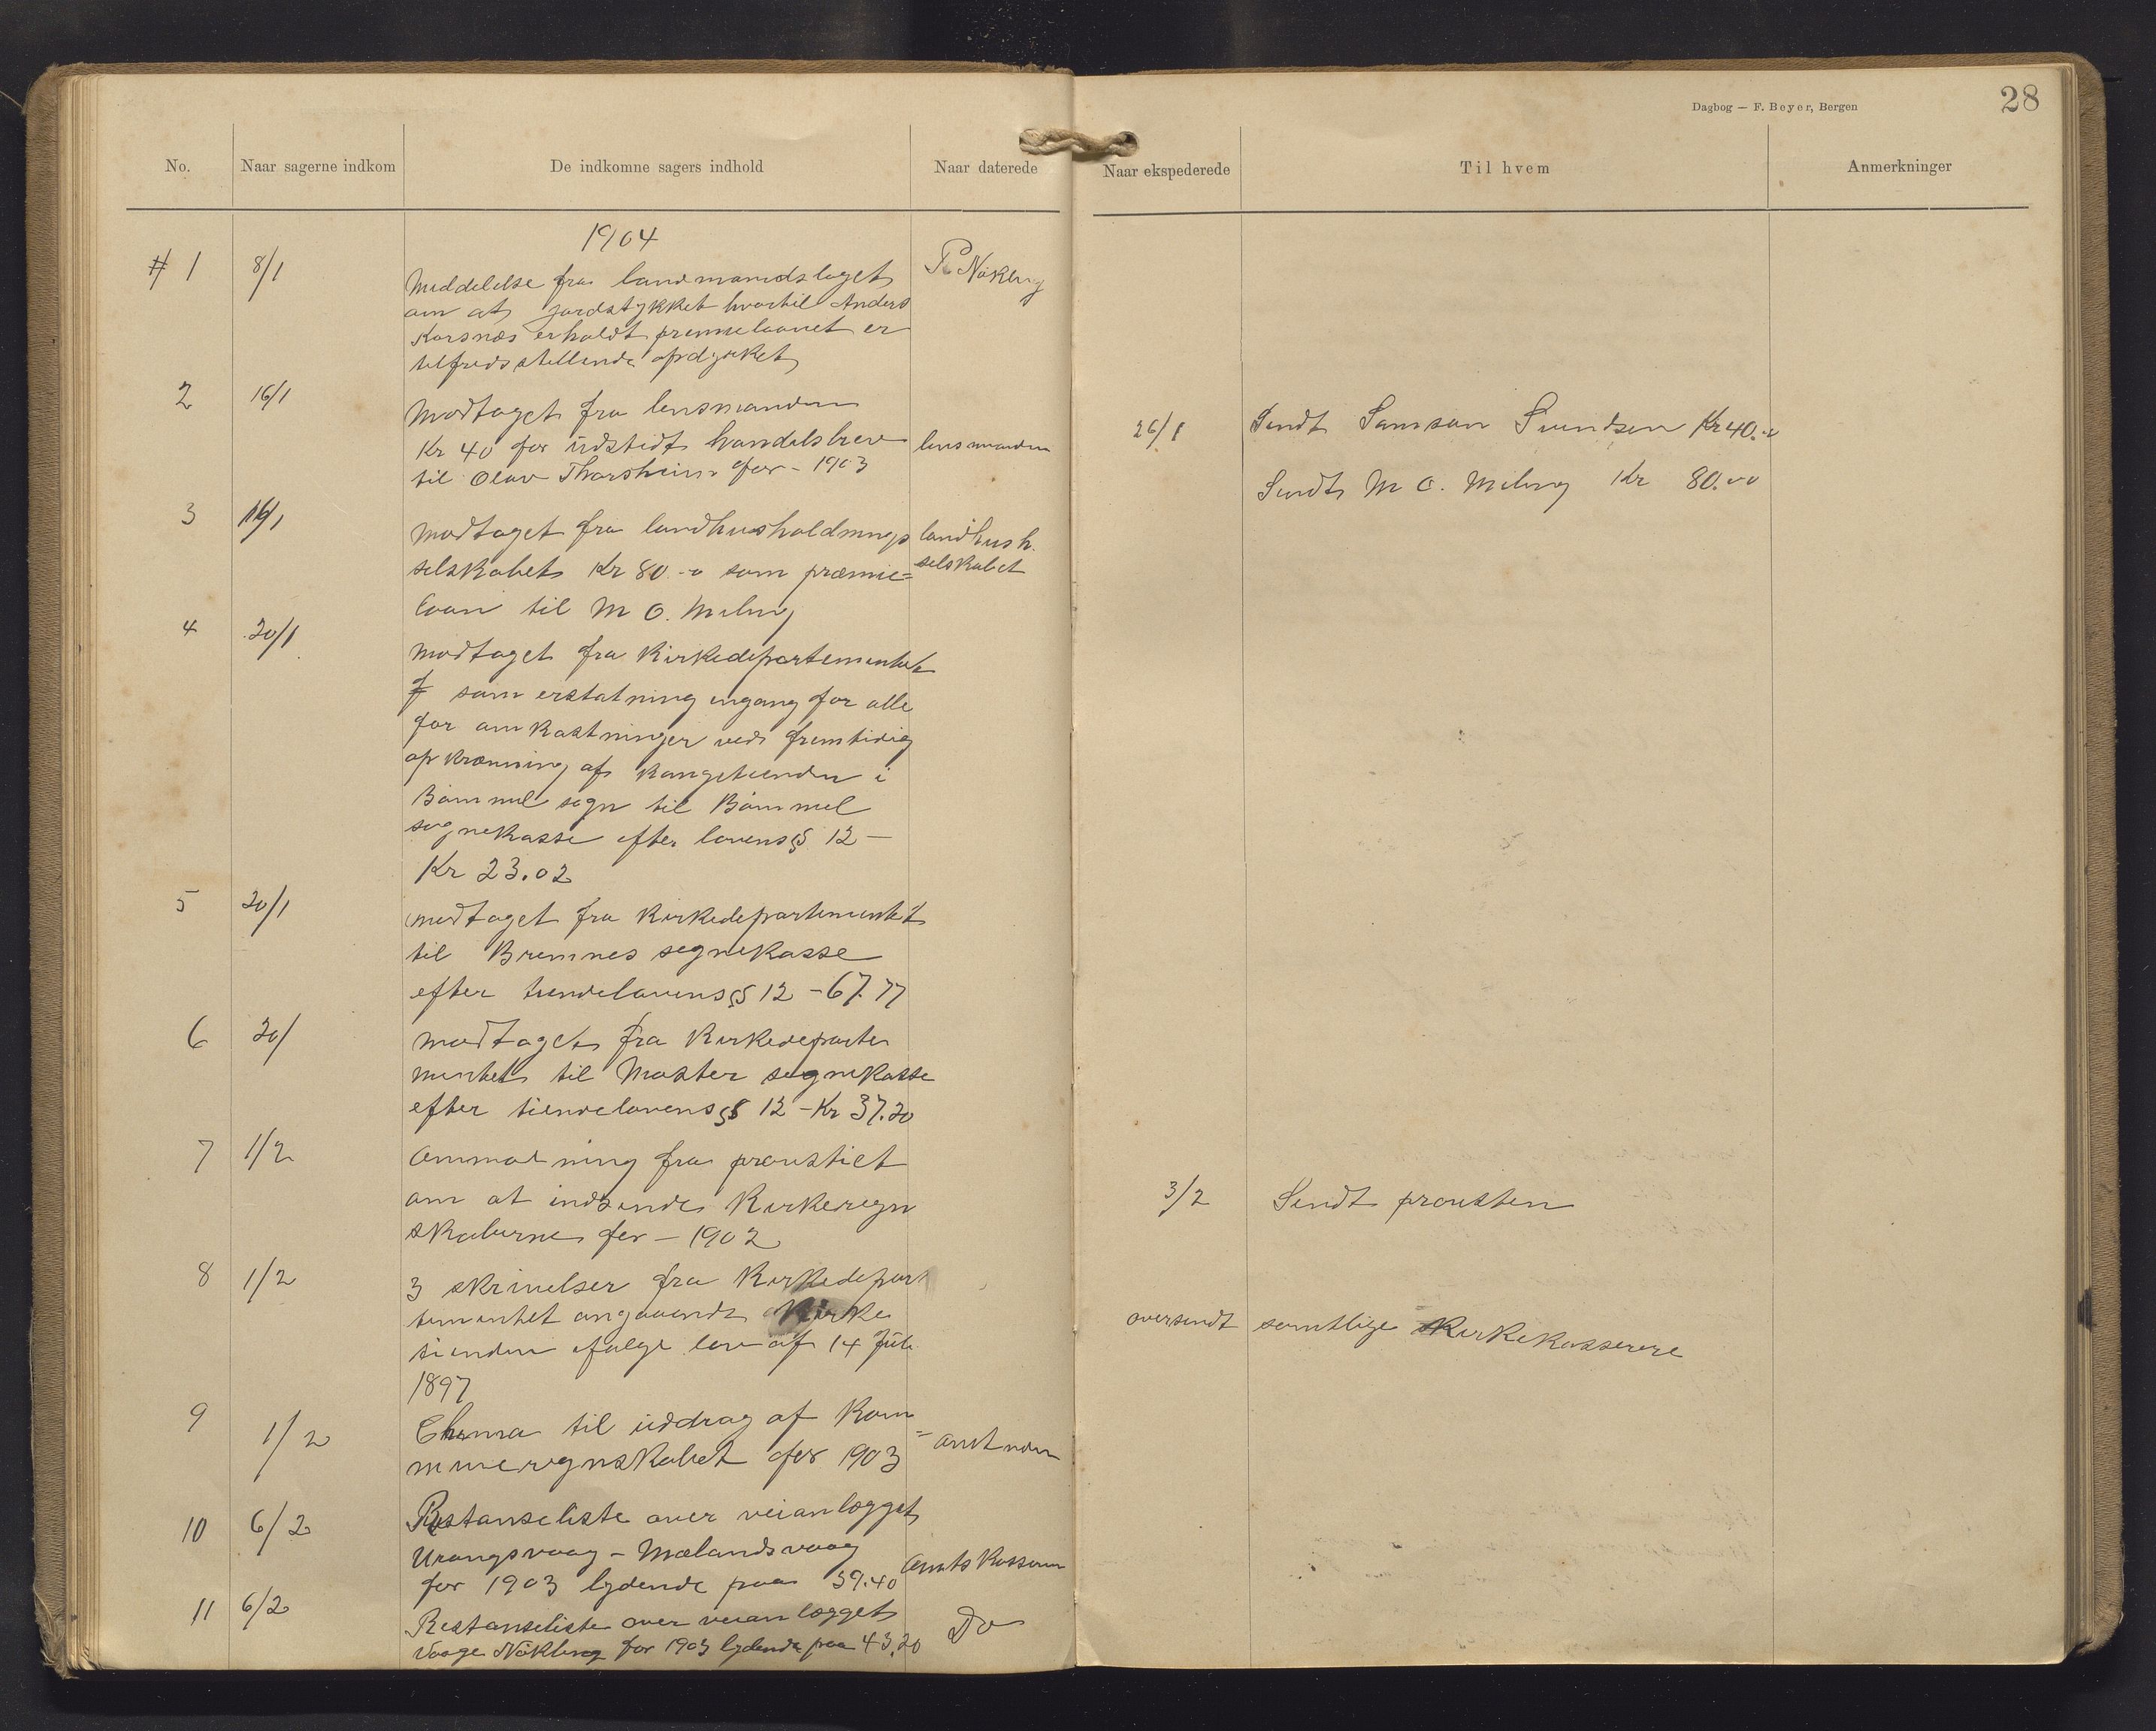 Dagbog — F. Beyer, Bergen
28
No.
Naar sagerne indkom
De indkomne sagers indhold
Naar daterede
Naar ekspederede
Til hvem
Anmerkninger
1904
# 1 8/1 Meddelelse fra landmandslaget P. Nökling
om at jordstykket hvortil Anders
Korsnæs erholdt premielaanet er
tilfredsstillende opdyrket
2 16/1 Modtaget fra lensmanden
Kr 40 for udstedt handelsbrev lensmanden
til Olav Thorsheim for - 1903
26/1 Sendt Samson Svendsen Kr 40.00
Sendt M O. Meling Kr 80.00
3 16/1 modtaget fra landhusholdnings landhush.
selskabet Kr 80.00 som præmie= selskabet
laan til M O. Meling
4 20/1 modtaget fra Kirkedepartementet
som erstatning engang for alle
for omkostninger ved fremtidig
opkrævning af Kongetienden i
Bömmel sogn til Bömmel
sognekasse efter lovens § 12 -
Kr 23.02
5 20/1 modtaget fra Kirkedepartementet
til Bremnes sognekasse
efter tiendelovens § 12 - 67.77
6 20/ modtaget fra Kirkedeparte
mentet til Moster sognekasse
efter tiendelovens § 12 - Kr 37.20
7 1/2 Anmodning fra proustiet
om at indsende Kirkeregn
skaberne for - 1902
3/2 Sendt prousten
8 1/2 3 skrivelser fra Kirkedepar
tementet angaaende Kirke
tienden ifølge lov af 14 Juli
1897
oversendt samtlige Kirkekasserere
9 1/2 til uddrag af Kom=
muneregnskabet for 1903 amtmanden
10 6/2 Restanseliste over veianlægget
Urangsvaag - Mælandsvaag
for 1903 lydende paa 39.40 Amtskasseren
11 6/2 Restanseliste over veianlægget Do
Vaage Nökling for 1903 lydende paa 43.20